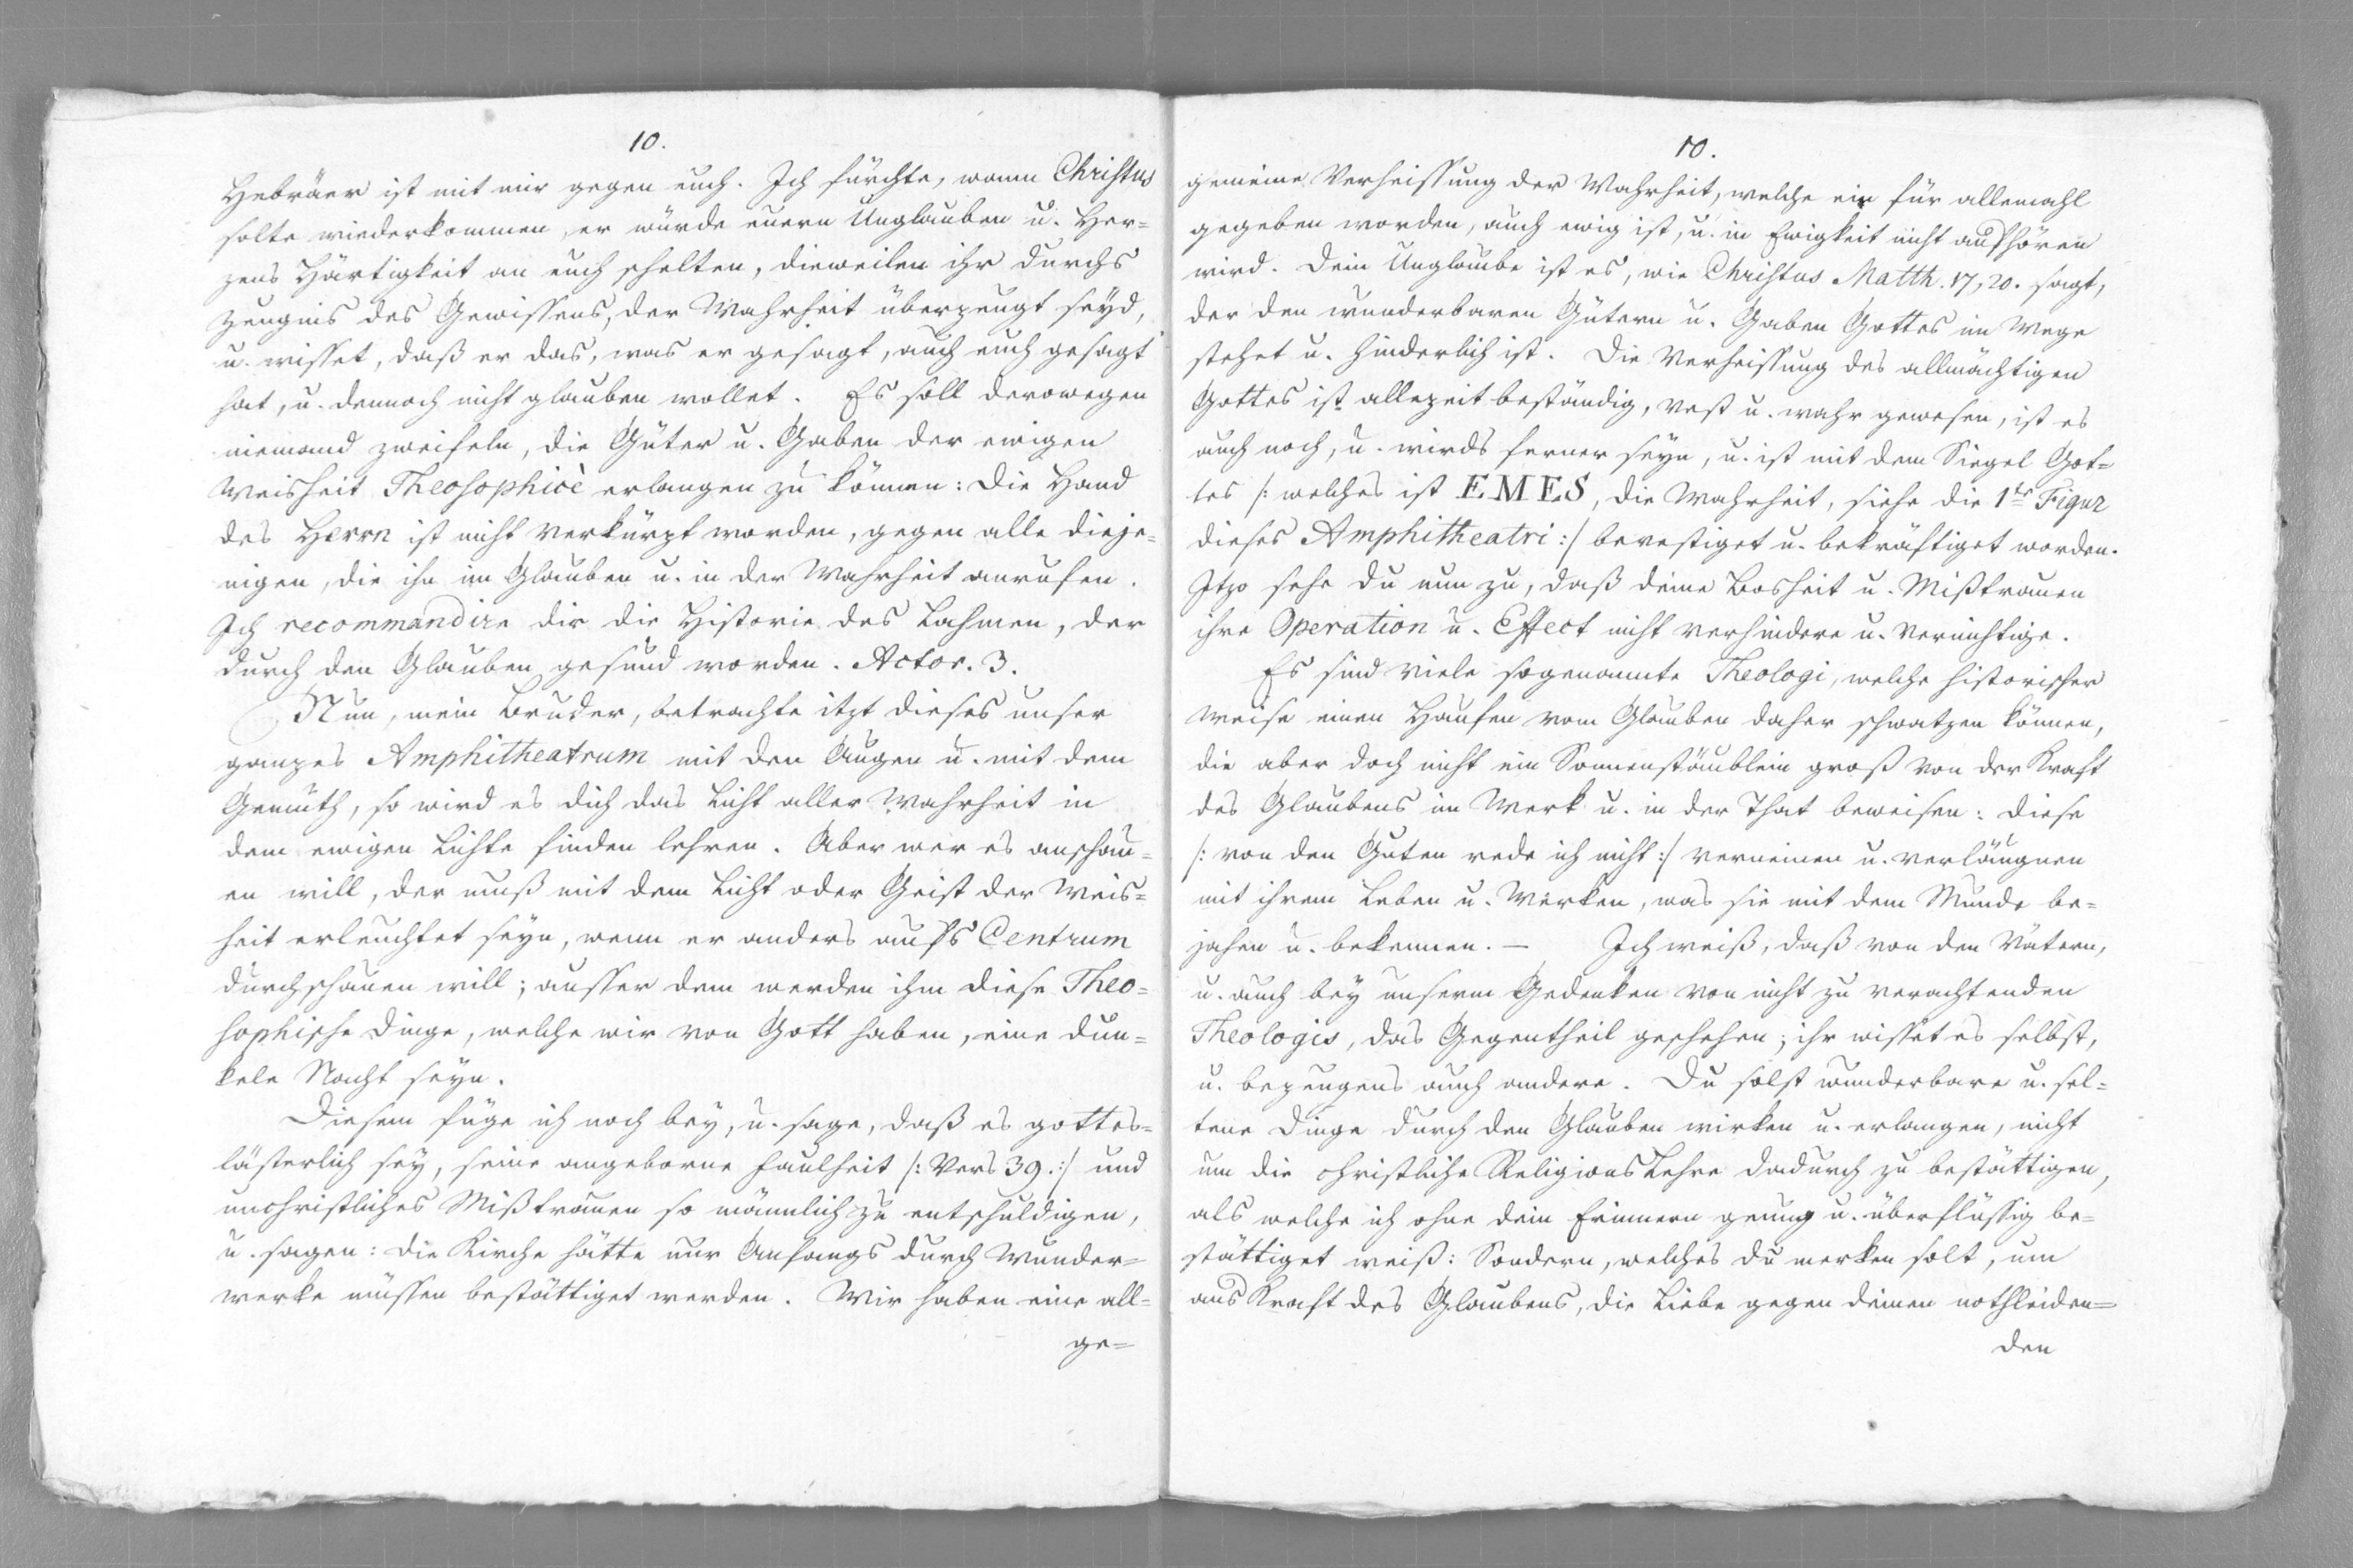 10.
Hebräer ist mit mir gegen euch. Ich fürchte, wann Christus
solte wiederkommen, er würde euern Unglauben u. Her=
zens Härtigkeit an euch schelten, dieweilen ihr durchs
Zeugnis des Gewissens, der Wahrheit überzeugt seyd,
u. wisset, daß er das, was er gesagt, auch euch gesagt
hat, u. dennoch nicht glauben wollet. Es soll derowegen
niemand zweifeln, die Güter u. Gaben der ewigen
Weisheit Theosophicè erlangen zu können: Die Hand
des Herrn ist nicht verkürzt worden, gegen alle dieje=
nigen, die ihn im Glauben u. in der Wahrheit anrufen.
Ich recommandire dir die Historie des Lahmen, der
durch den Glauben gesund worden. Actor. 3.
Nun, mein Bruder, betrachte itzt dieses unser
ganzes Amphitheatrum mit den Augen u. mit dem
Gemüth, so wird es dich das Licht aller Wahrheit in
dem ewigen Lichte finden lehren. Aber wer es anschau=
en will, der muß mit dem Licht oder Geist der Weis=
heit erleuchtet seyn, wenn er anders aufs Centrum
durchschauen will; ausser dem werden ihm diese Theo=
sophische Dinge, welche wir von Gott haben, eine dun=
kele Nacht seyn.
Diesem füge ich noch bey, u. sage, daß es gottes=
lästerlich sey, seine angeborne Faulheit /: Vers 39. :/ und
unchristliches Mißtrauen so männlich zu entschuldigen,
u. sagen: die Kirche hätte nur Anfangs durch Wunder=
werke müssen bestättiget werden. Wir haben eine all=
ge=
10.
gemeine Verheissung der Wahrheit, welche ein für allemahl
gegeben worden, auch ewig ist, u. in Ewigkeit nicht aufhören
wird. Dein Unglaube ist es, wie Christus Matth. 17, 20. sagt,
der den wunderbaren Gütern u. Gaben Gottes im Wege
stehet u. hinderlich ist. Die Verheissung des allmächtigen
Gottes ist allezeit beständig, vest u. wahr gewesen, ist es
auch noch, u. wirds ferner seyn, u. ist mit dem Siegel Got=
tes /: welches ist EMES, die Wahrheit, siehe die 1te Figur
dieses Amphitheatri :/ bevestiget u. bekräftiget worden.
Itzo sehe du nun zu, daß deine Bosheit u. Mißtrauen
ihre Operation u. Effect nicht verhindere u. vernichtige.
Es sind viele sogenannte Theologi, welche historischer
weise einen Haufen vom Glauben daher schwatzen können,
die aber doch nicht ein Sonnenstäublein groß von der Kraft
des Glaubens im Werk u. in der That beweisen: diese
/: von den Guten rede ich nicht :/ verneinen u. verläugnen
mit ihrem Leben u. Werken, was sie mit dem Munde be=
jahen u. bekennen. — Ich weiß, daß von den Vätern,
u. auch bey unserm Gedenken von nicht zu verachtenden
Theologis, das Gegentheil geschehen; ihr wisset es selbst,
u. bezeugens auch andere. Du solst wunderbare u. sel=
tene Dinge durch den Glauben wirken u. erlangen, nicht
um die christliche Religions Lehre dadurch zu bestättigen,
als welche ich ohne dein Erinnern genug u. überflüssig be=
stättiget weiß: Sondern, welches du merken solt, um
aus Kraft des Glaubens, die Liebe gegen deinen nothleiden=
den